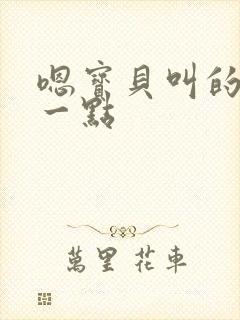 嗯寶貝叫的
一點
萬里 花車